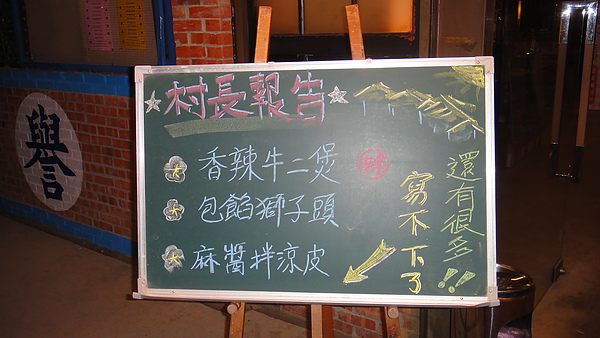 村長報告
香辣牛二煲 辣
包餡獅子頭
麻醬拌涼皮
還有很多!!
寫不下了
譽